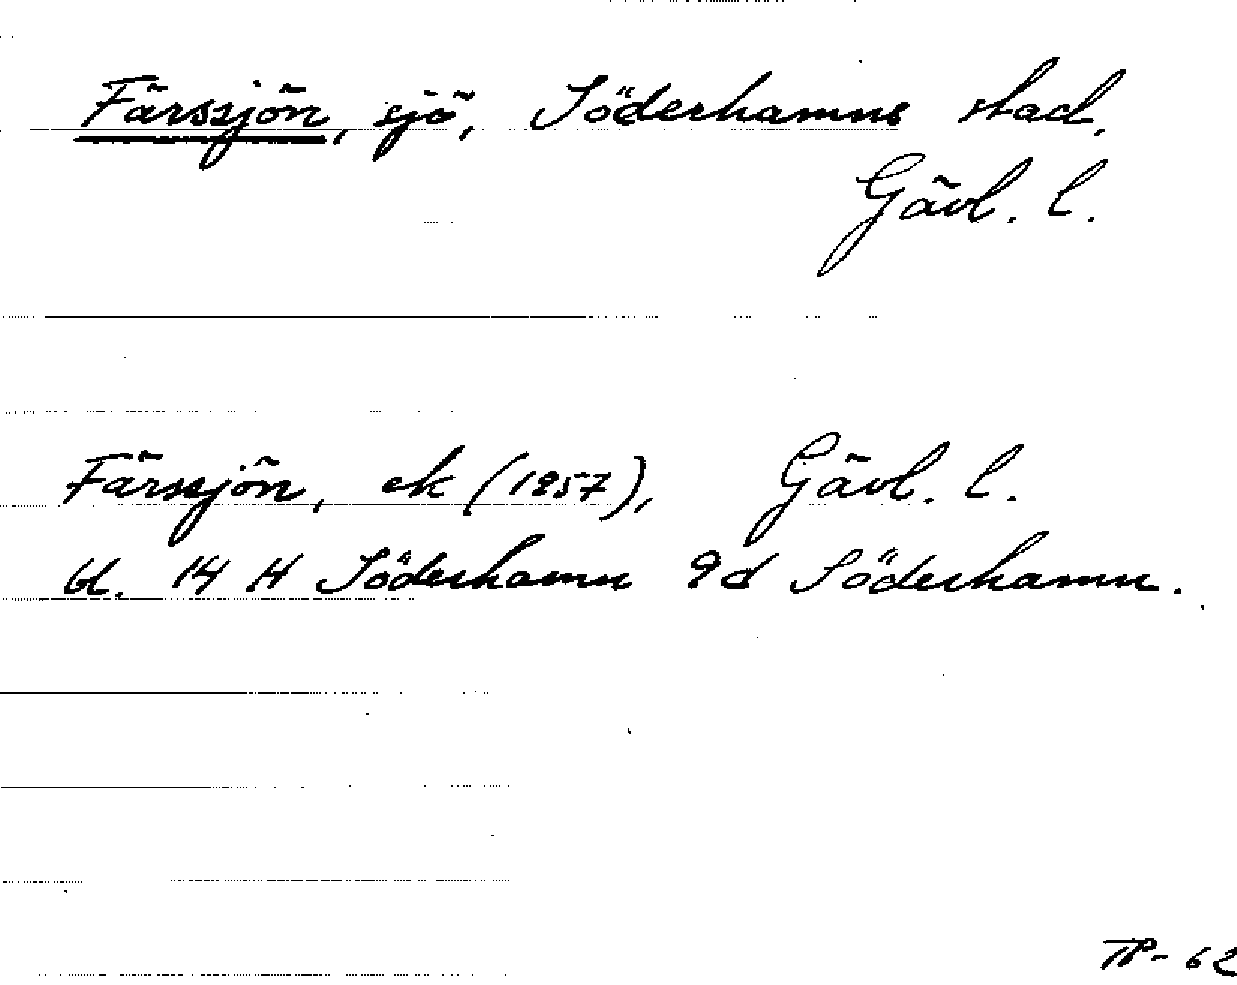 Färssjön, sjö, Söderhamns stad,
Gävl. l.
Färssjön, ek (1957), Gävl. l.
bl. 14 H Söderhamn 9d Söderhamn.
TP-62